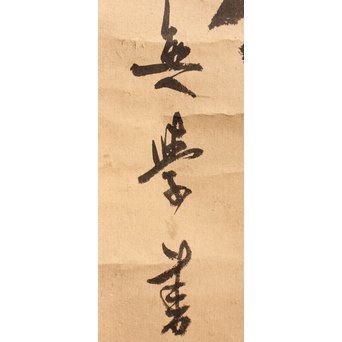 無學書